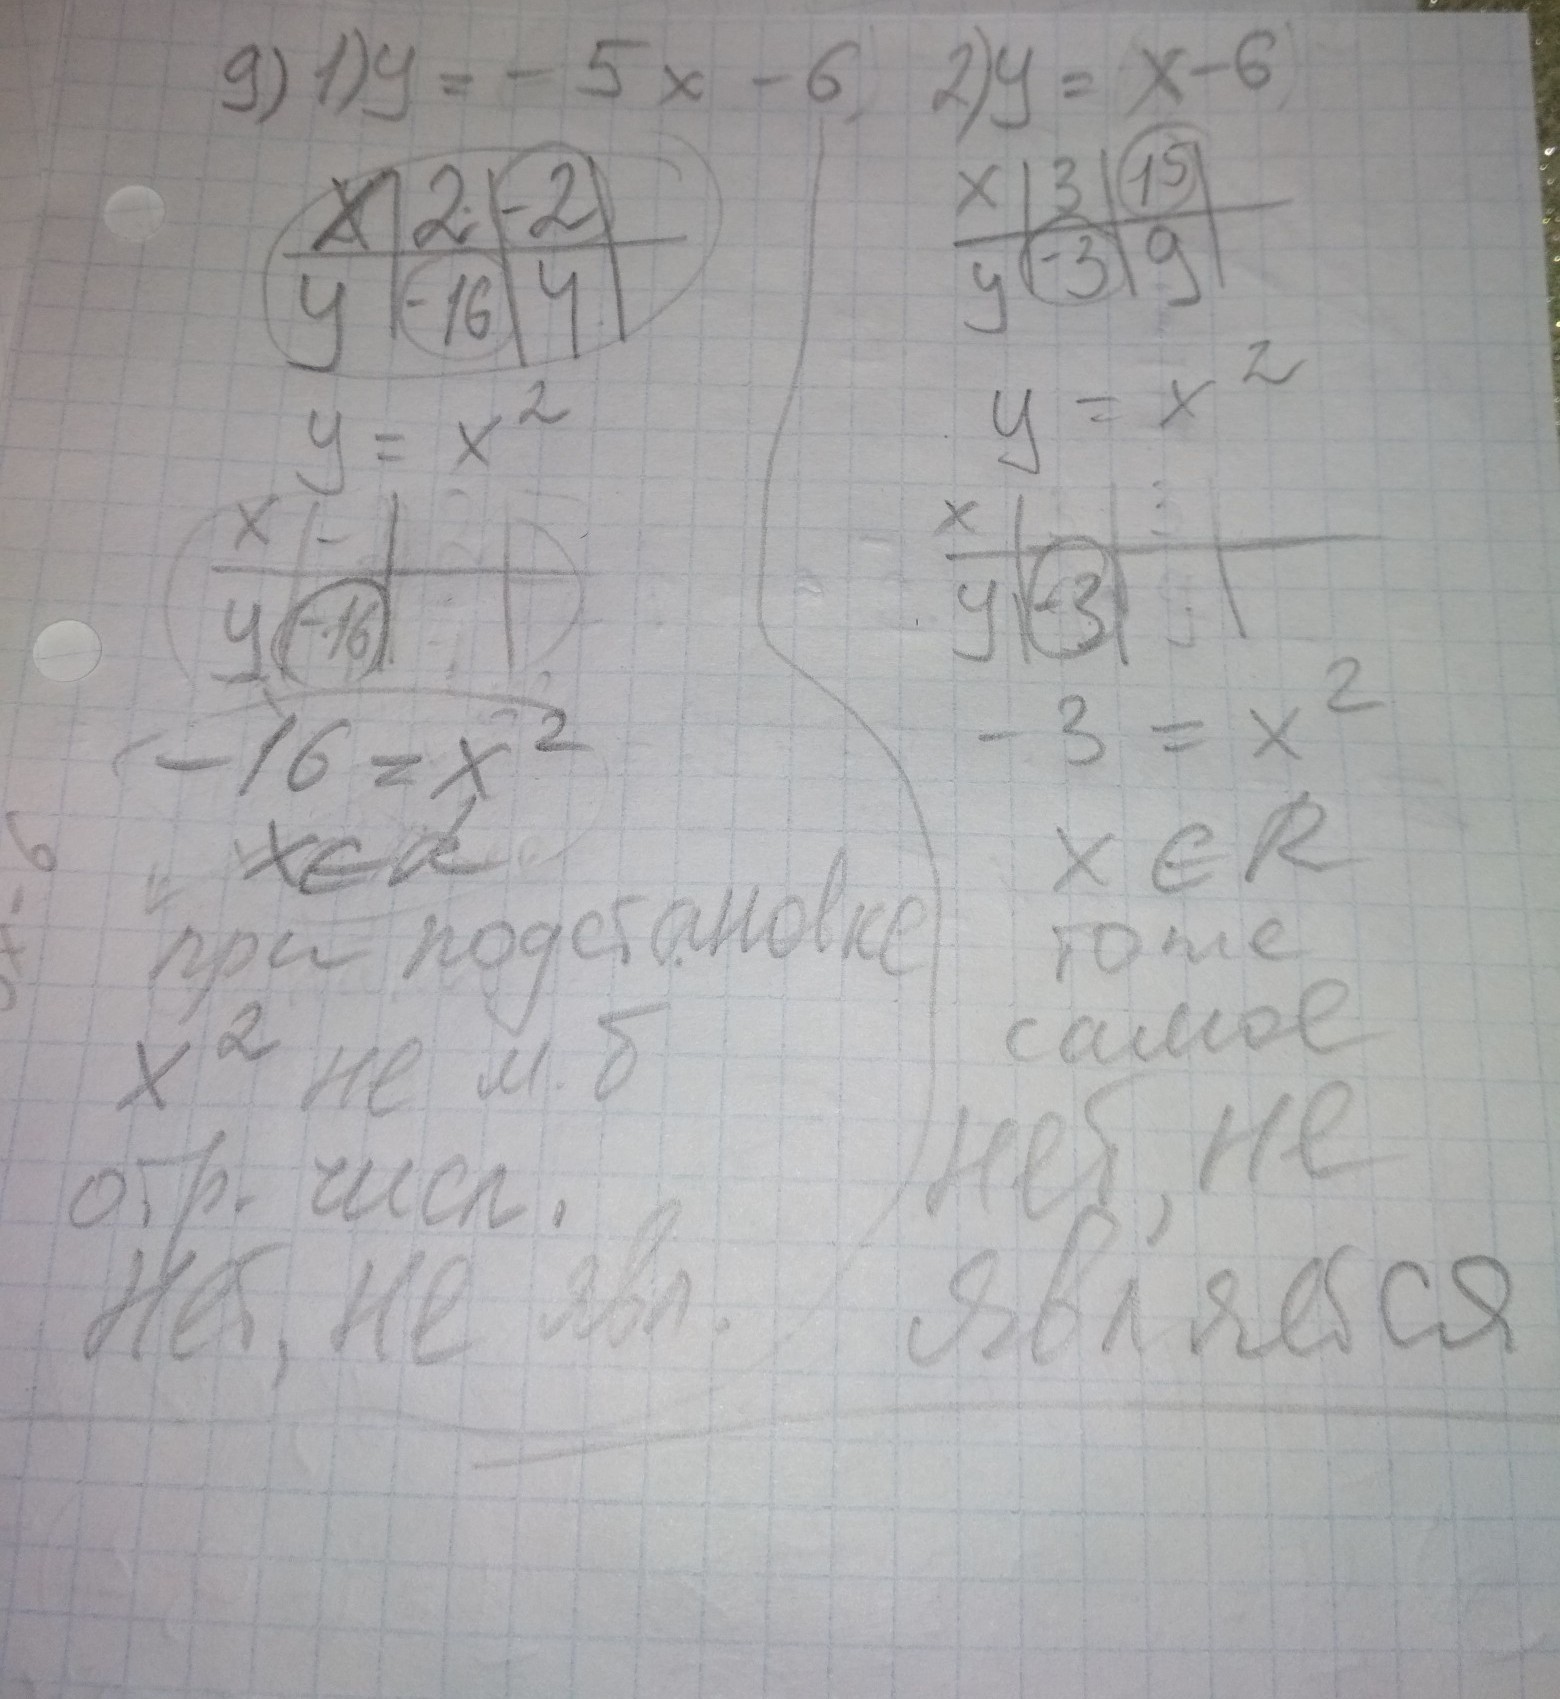 9) 1) y = -5x - 6
x | 2 | -2
y | -16 | 4
y = x²
x | -
y | -16
-16 = x²
x ∈ R
при подстановке
x² не м. б
отр. числ.
нет, не явл.
2) y = x - 6
x | 3 | 15
y | -3 | 9
y = x²
x | -
y | -3
-3 = x²
x ∈ R
тоже
самое
нет, не
является